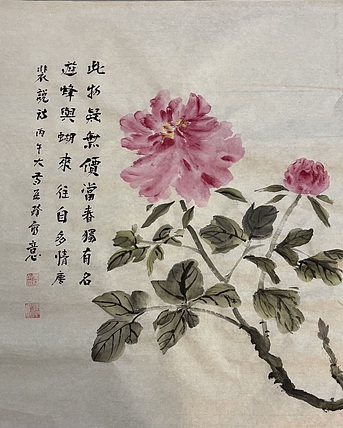 此物疑無價當春獨有名
遊蜂與蝴來往自多情唐
裴說詩丙午大寫意